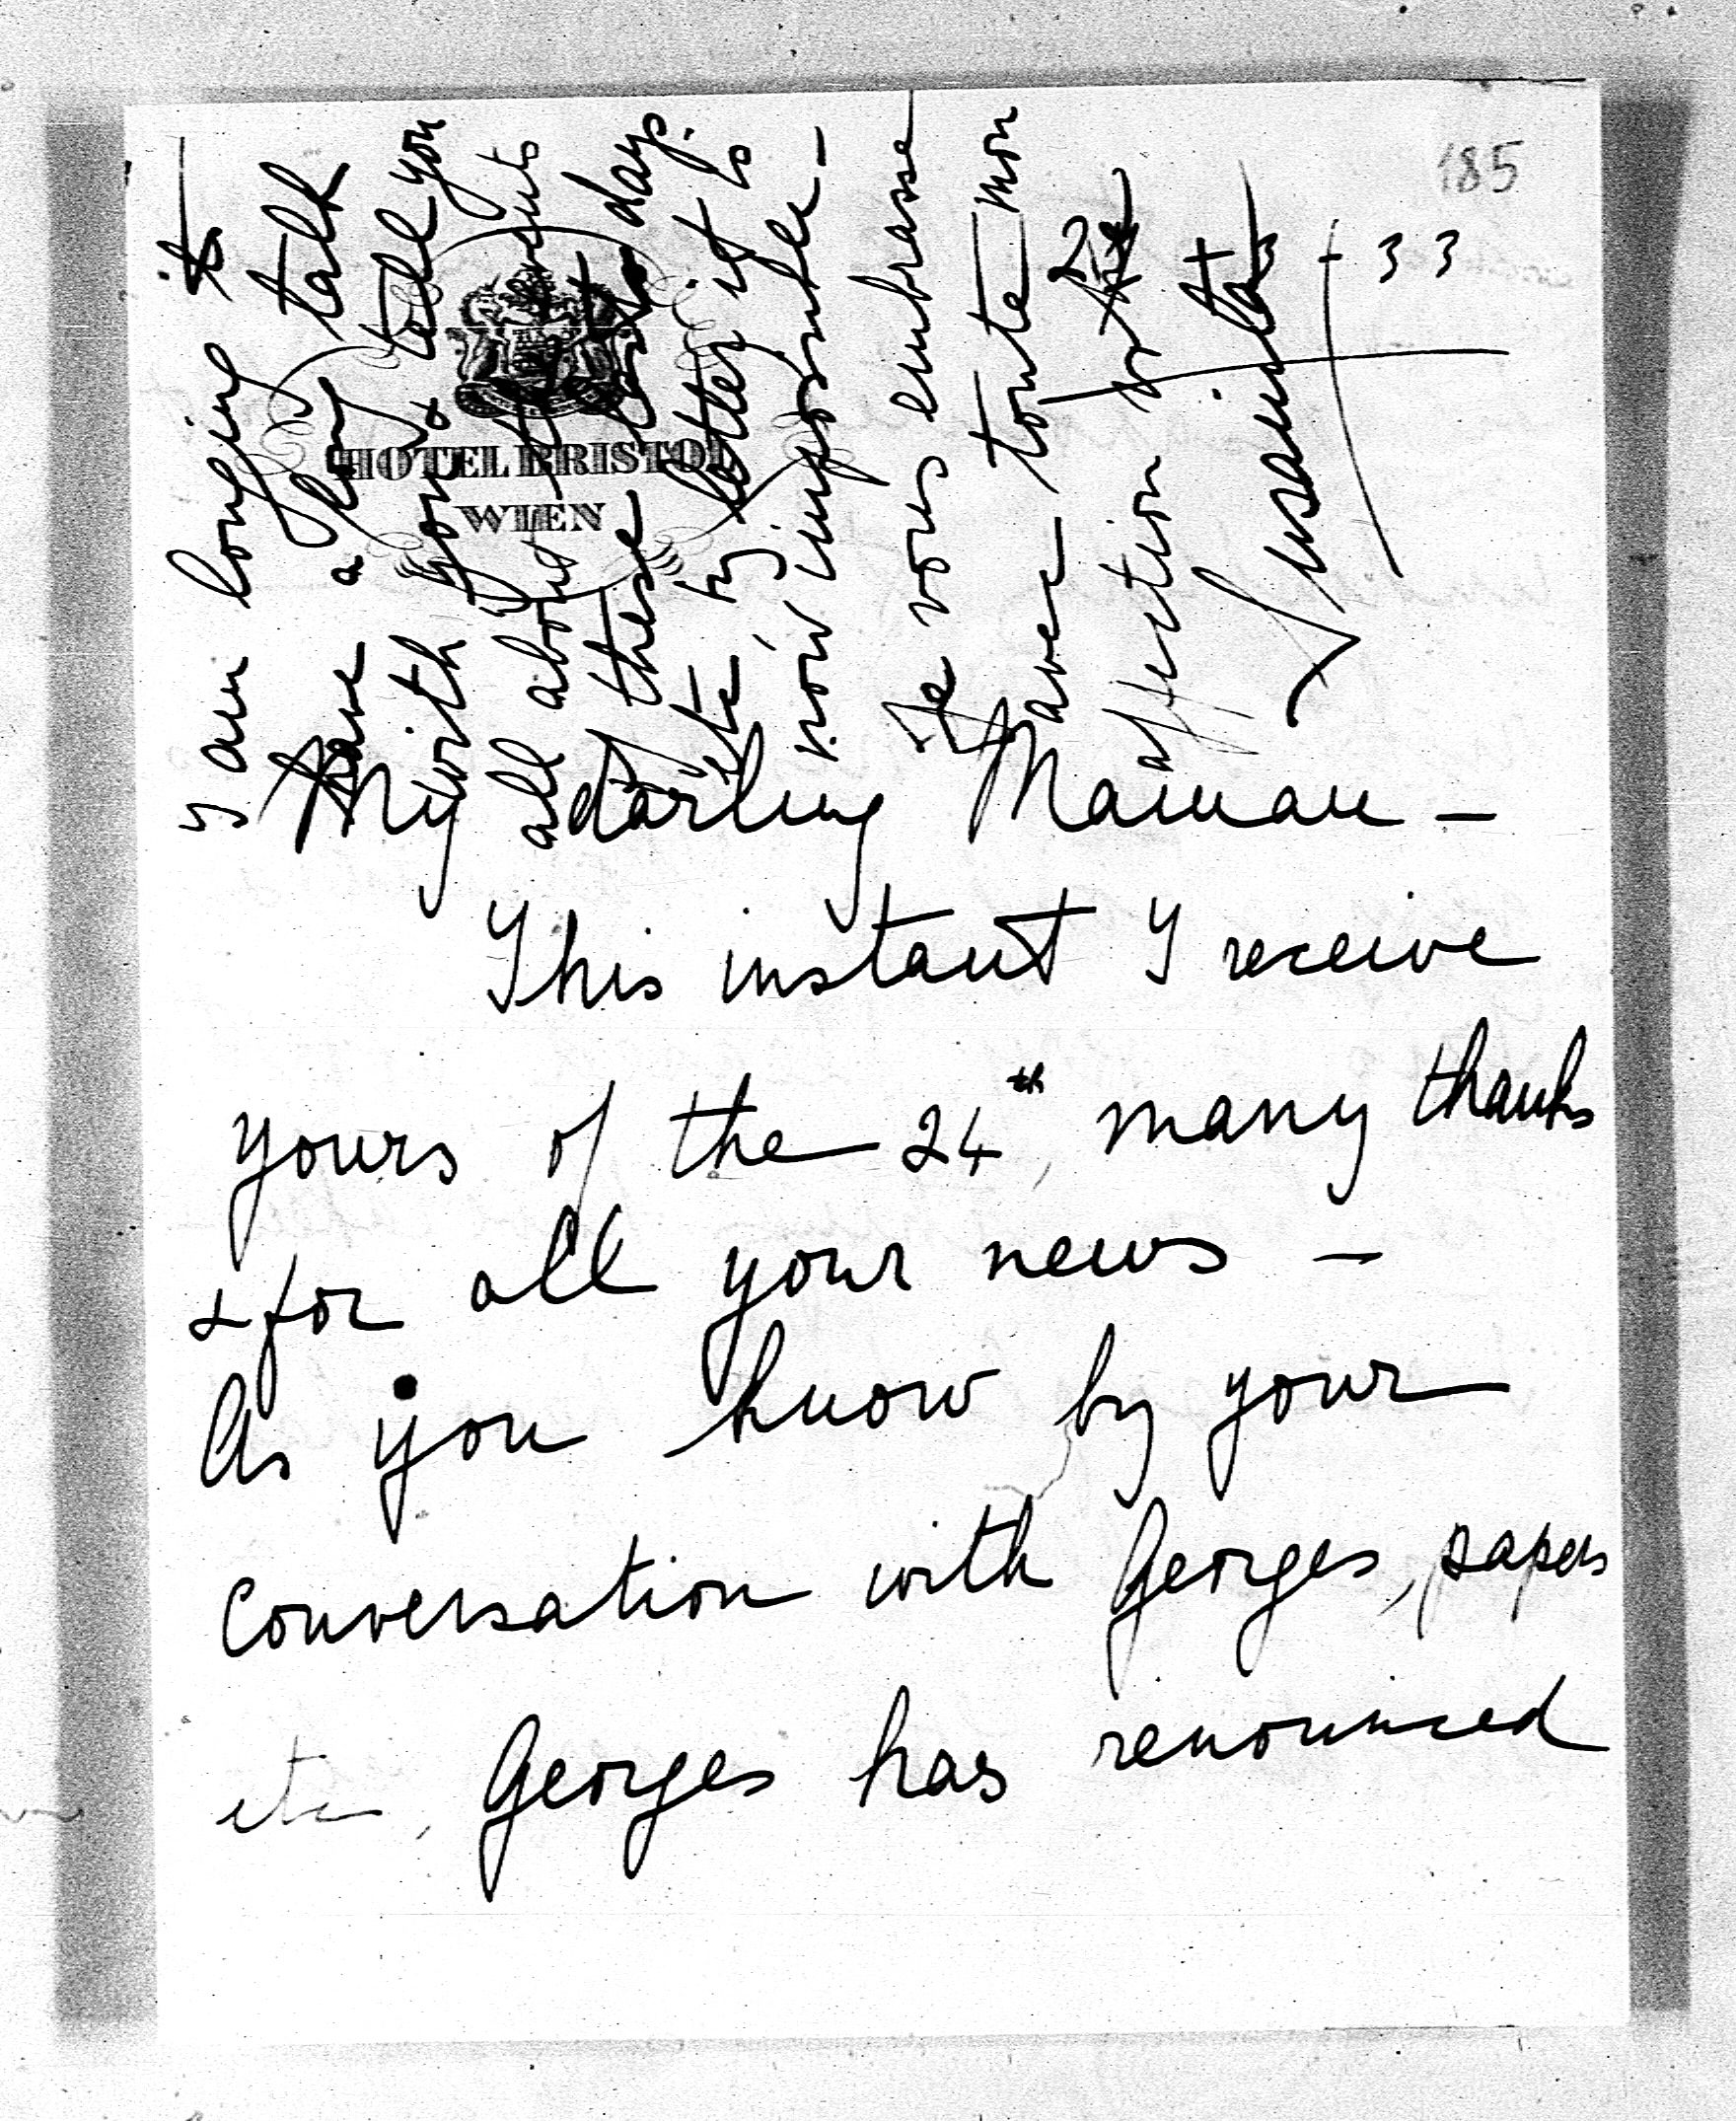 185
HOTEL BRISTOL
WIEN
3 - 33
My darling Maman —
This instant I receive
yours of the 24th, many thanks
& for all your news —
As you know by your
conversation with Georges, papers
etc, Georges has renounced
I am longing to
have a long talk
with you & tell you
all about
these days.
by letter it is
now impossible —
Je vous embrasse
avec toute mon
affection yr
Susanita